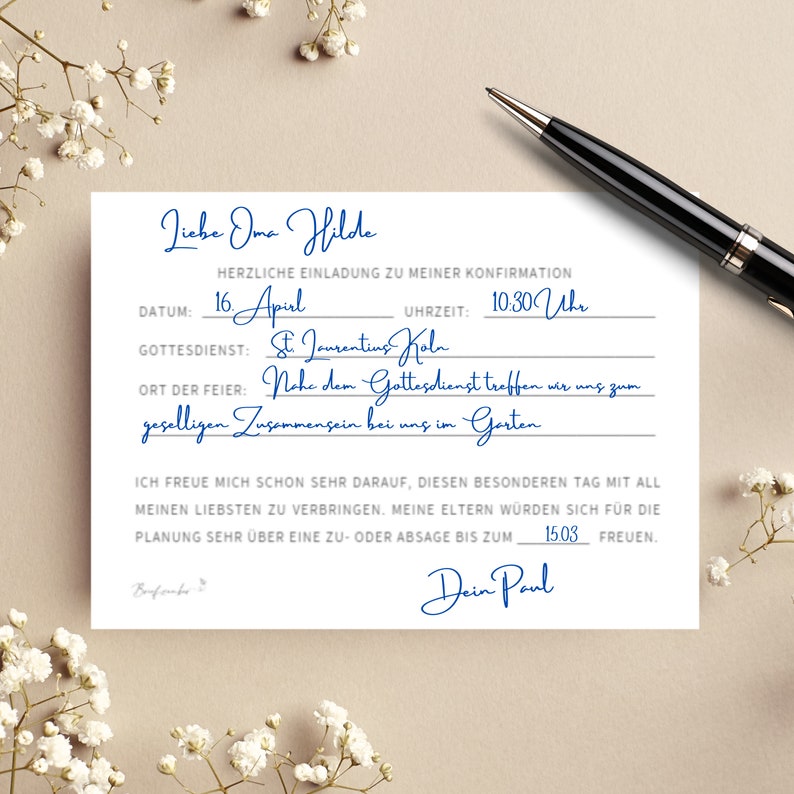 Liebe Oma Hilde
HERZLICHE EINLADUNG ZU MEINER KONFIRMATION
DATUM: 16. Apirl UHRZEIT: 10:30 Uhr
GOTTESDIENST: St. Laurentius Köln
ORT DER FEIER: Nahc dem Gottesdienst treffen wir uns zum
geselligen Zusammensein bei uns im Garten
ICH FREUE MICH SCHON SEHR DARAUF, DIESEN BESONDEREN TAG MIT ALL
MEINEN LIEBSTEN ZU VERBRINGEN. MEINE ELTERN WÜRDEN SICH FÜR DIE
PLANUNG SEHR ÜBER EINE ZU- ODER ABSAGE BIS ZUM 15.03 FREUEN.
Dein Paul